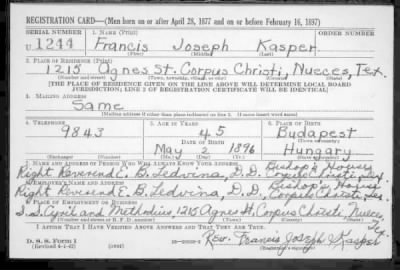 REGISTRATION CARD—(Men born on or after April 28, 1877 and on or before February 16, 1897)
SERIAL NUMBER 1. NAME (Print) ORDER NUMBER
U 1244 Francis Joseph Kasper
(First) (Middle) (Last)
2. PLACE OF RESIDENCE (Print)
1215 Agnes St. Corpus Christi, Nueces, Tex.
(Number and street) (Town, township, village, or city) (County) (State)
[THE PLACE OF RESIDENCE GIVEN ON THE LINE ABOVE WILL DETERMINE LOCAL BOARD
JURISDICTION; LINE 2 OF REGISTRATION CERTIFICATE WILL BE IDENTICAL]
3. MAILING ADDRESS
Same
[Mailing address if other than place indicated on line 2. If same insert word same]
4. TELEPHONE 5. AGE IN YEARS 6. PLACE OF BIRTH
9843 45 Budapest
DATE OF BIRTH (Town or county)
May 2 1896 Hungary
(Exchange) (Number) (Mo.) (Day) (Yr.) (State or country)
7. NAME AND ADDRESS OF PERSON WHO WILL ALWAYS KNOW YOUR ADDRESS Bishop's House
Right Reverend E. B. Ledvina, D. D. Corpus Christi, Tex.
8. EMPLOYER'S NAME AND ADDRESS Bishop's House
Right Reverend E. B. Ledvina, D. D. Corpus Christi, Tex.
9. PLACE OF EMPLOYMENT OR BUSINESS
S.S. Cyril and Methodius, 1215 Agnes St, Corpus Christi, Nueces, Tex.
(Number and street or R. F. D. number) (Town) (County) (State)
I AFFIRM THAT I HAVE VERIFIED ABOVE ANSWERS AND THAT THEY ARE TRUE.
D. S. S. Form 1
(Revised 4-1-42) (over) Rev. Francis Joseph Kasper